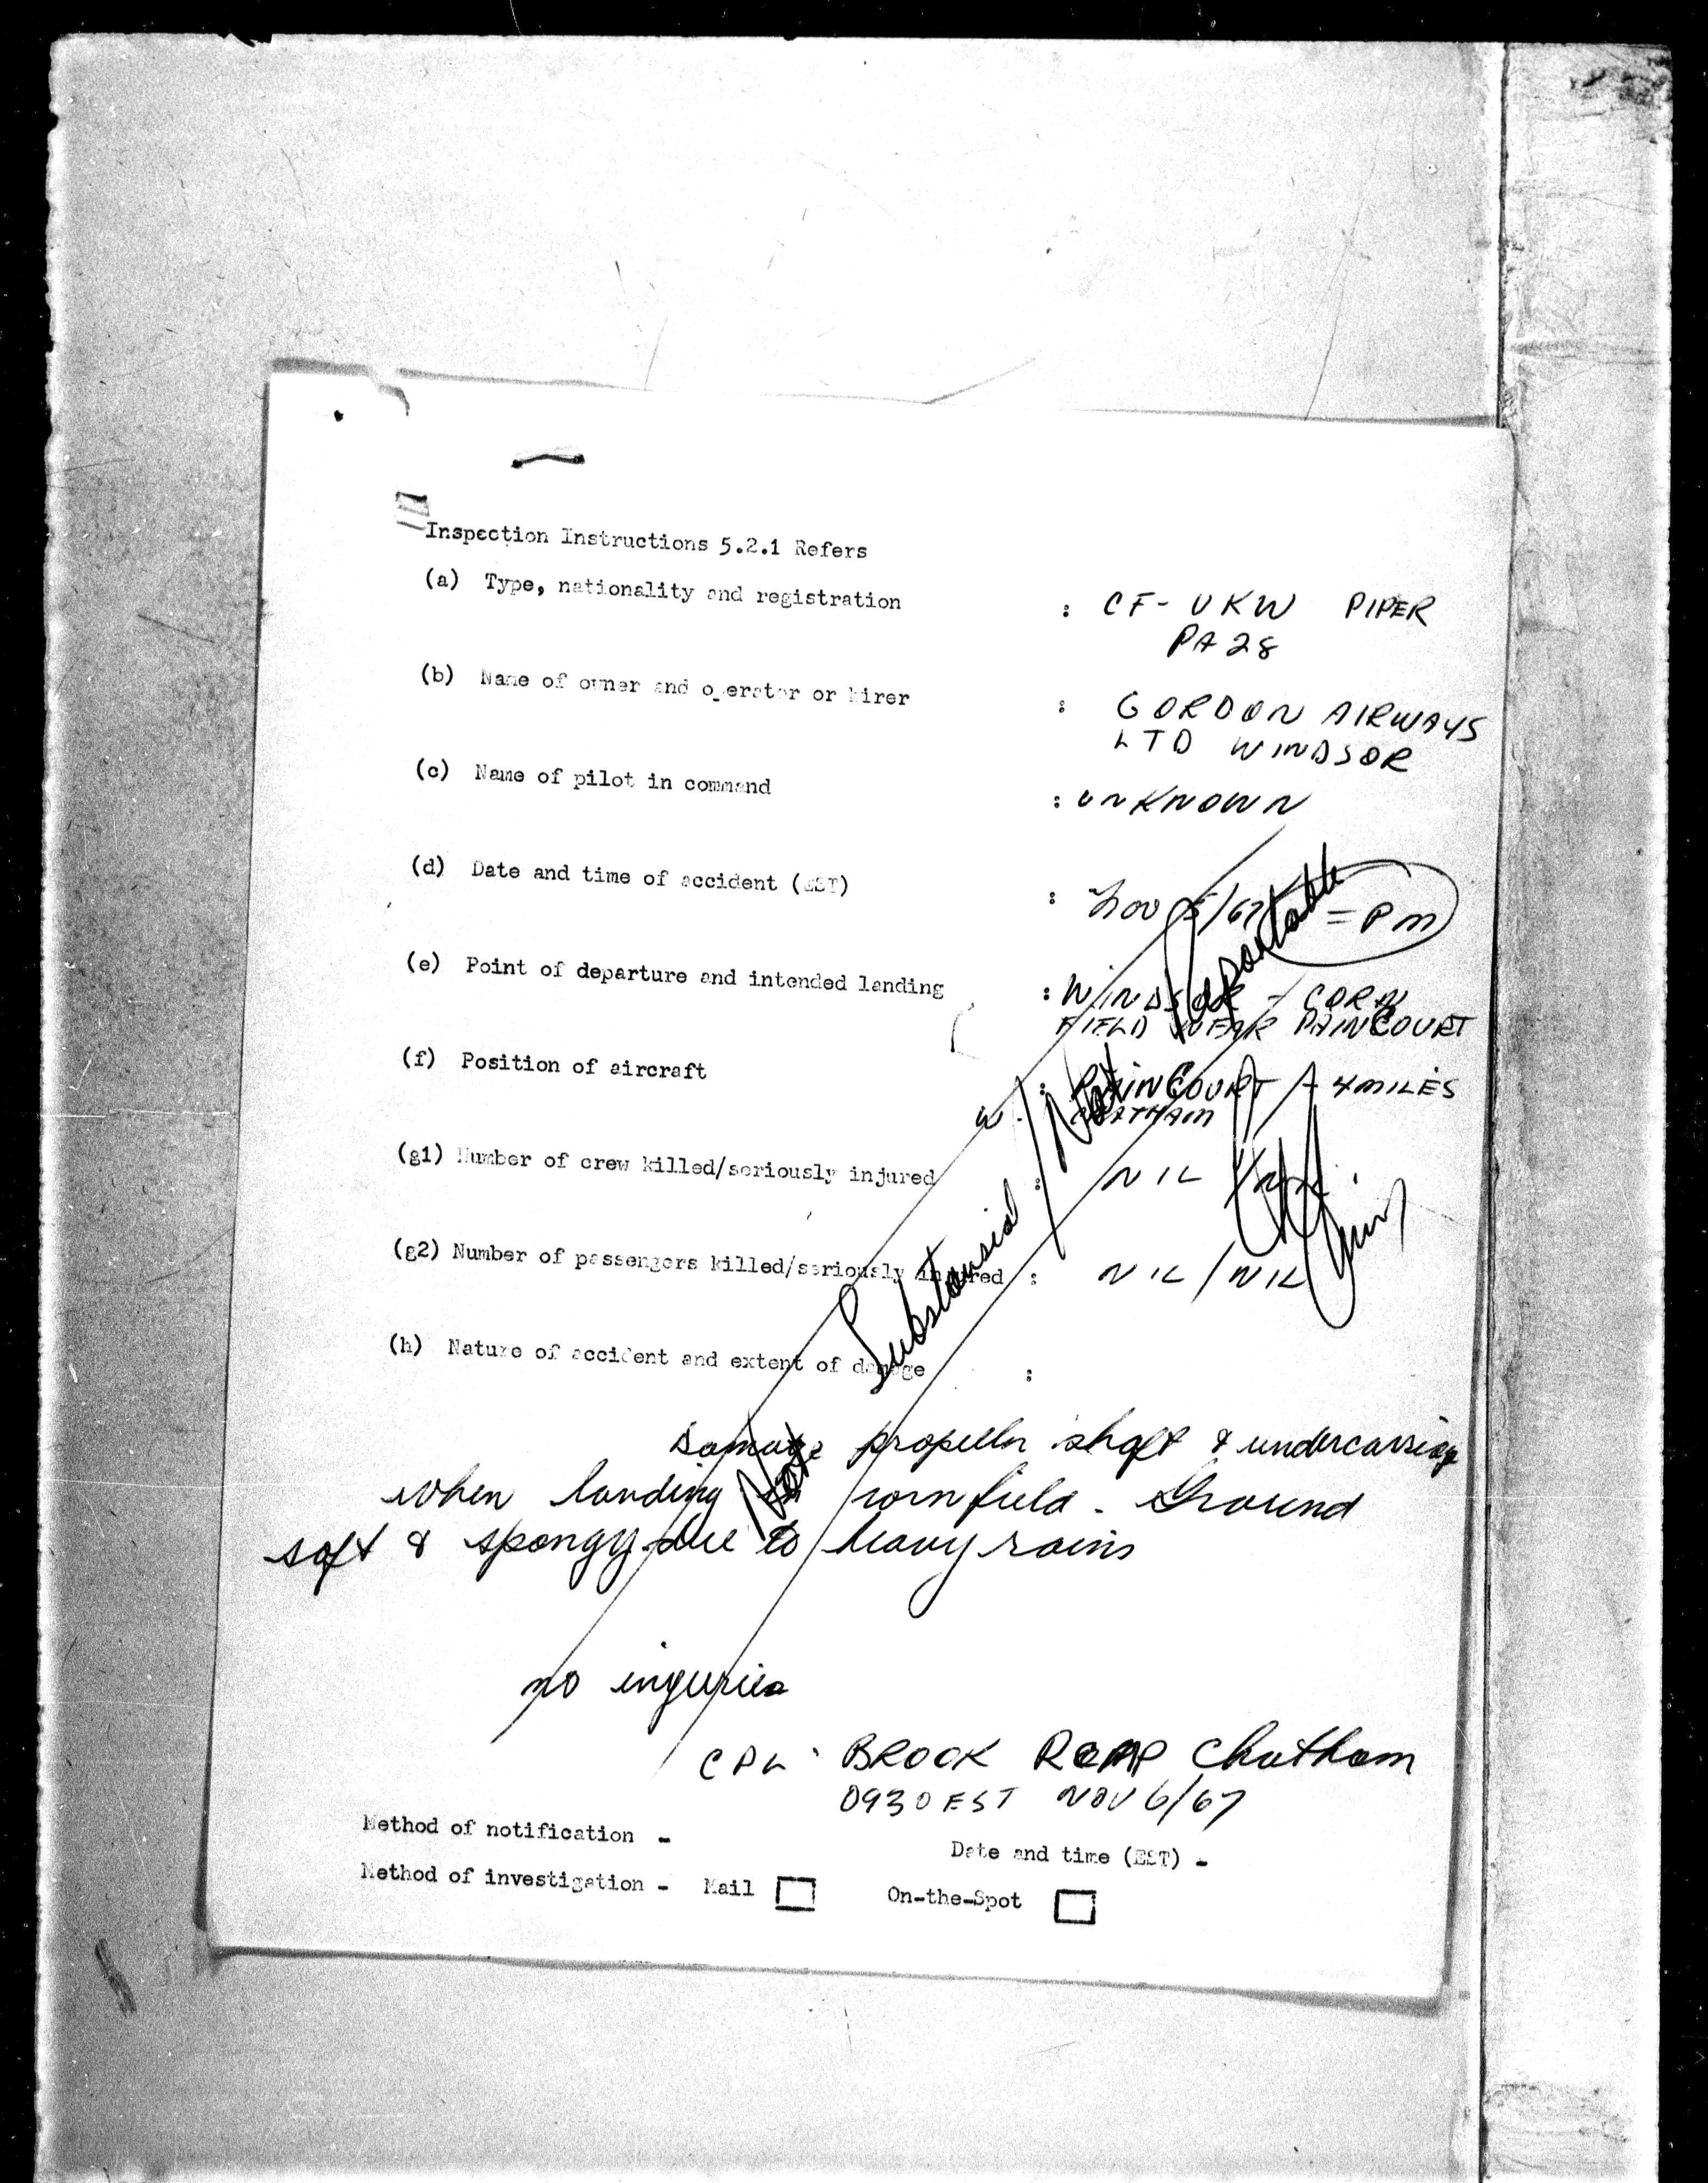 Inspection Instructions 5.2.1 Refers
(a) Type, nationality and registration : CF-UKW PIPER
PA28
(b) Name of owner and operator or hirer : GORDON AIRWAYS
LTD WINDSOR
(c) Name of pilot in command : UNKNOWN
(d) Date and time of accident (EST) : Nov 5/67 = PM
(e) Point of departure and intended landing : WINDSOR - CORN
FIELD NEAR PAINCOURT
(f) Position of aircraft : PAINCOURT 4 MILES
W. CHATHAM
(g1) Number of crew killed/seriously injured : NIL / NIL
(g2) Number of passengers killed/seriously injured : NIL / NIL
(h) Nature of accident and extent of damage :
Not Substansial / Not Reportable
Damage propeller shaft & undercarriage
when landing in cornfield - Ground
soft & spongy due to heavy rains
no inguries
CPL BROOK RCMP Chatham
0930 EST NOV 6/67
Method of notification -
Date and time (EST) -
Method of investigation - Mail On-the-Spot